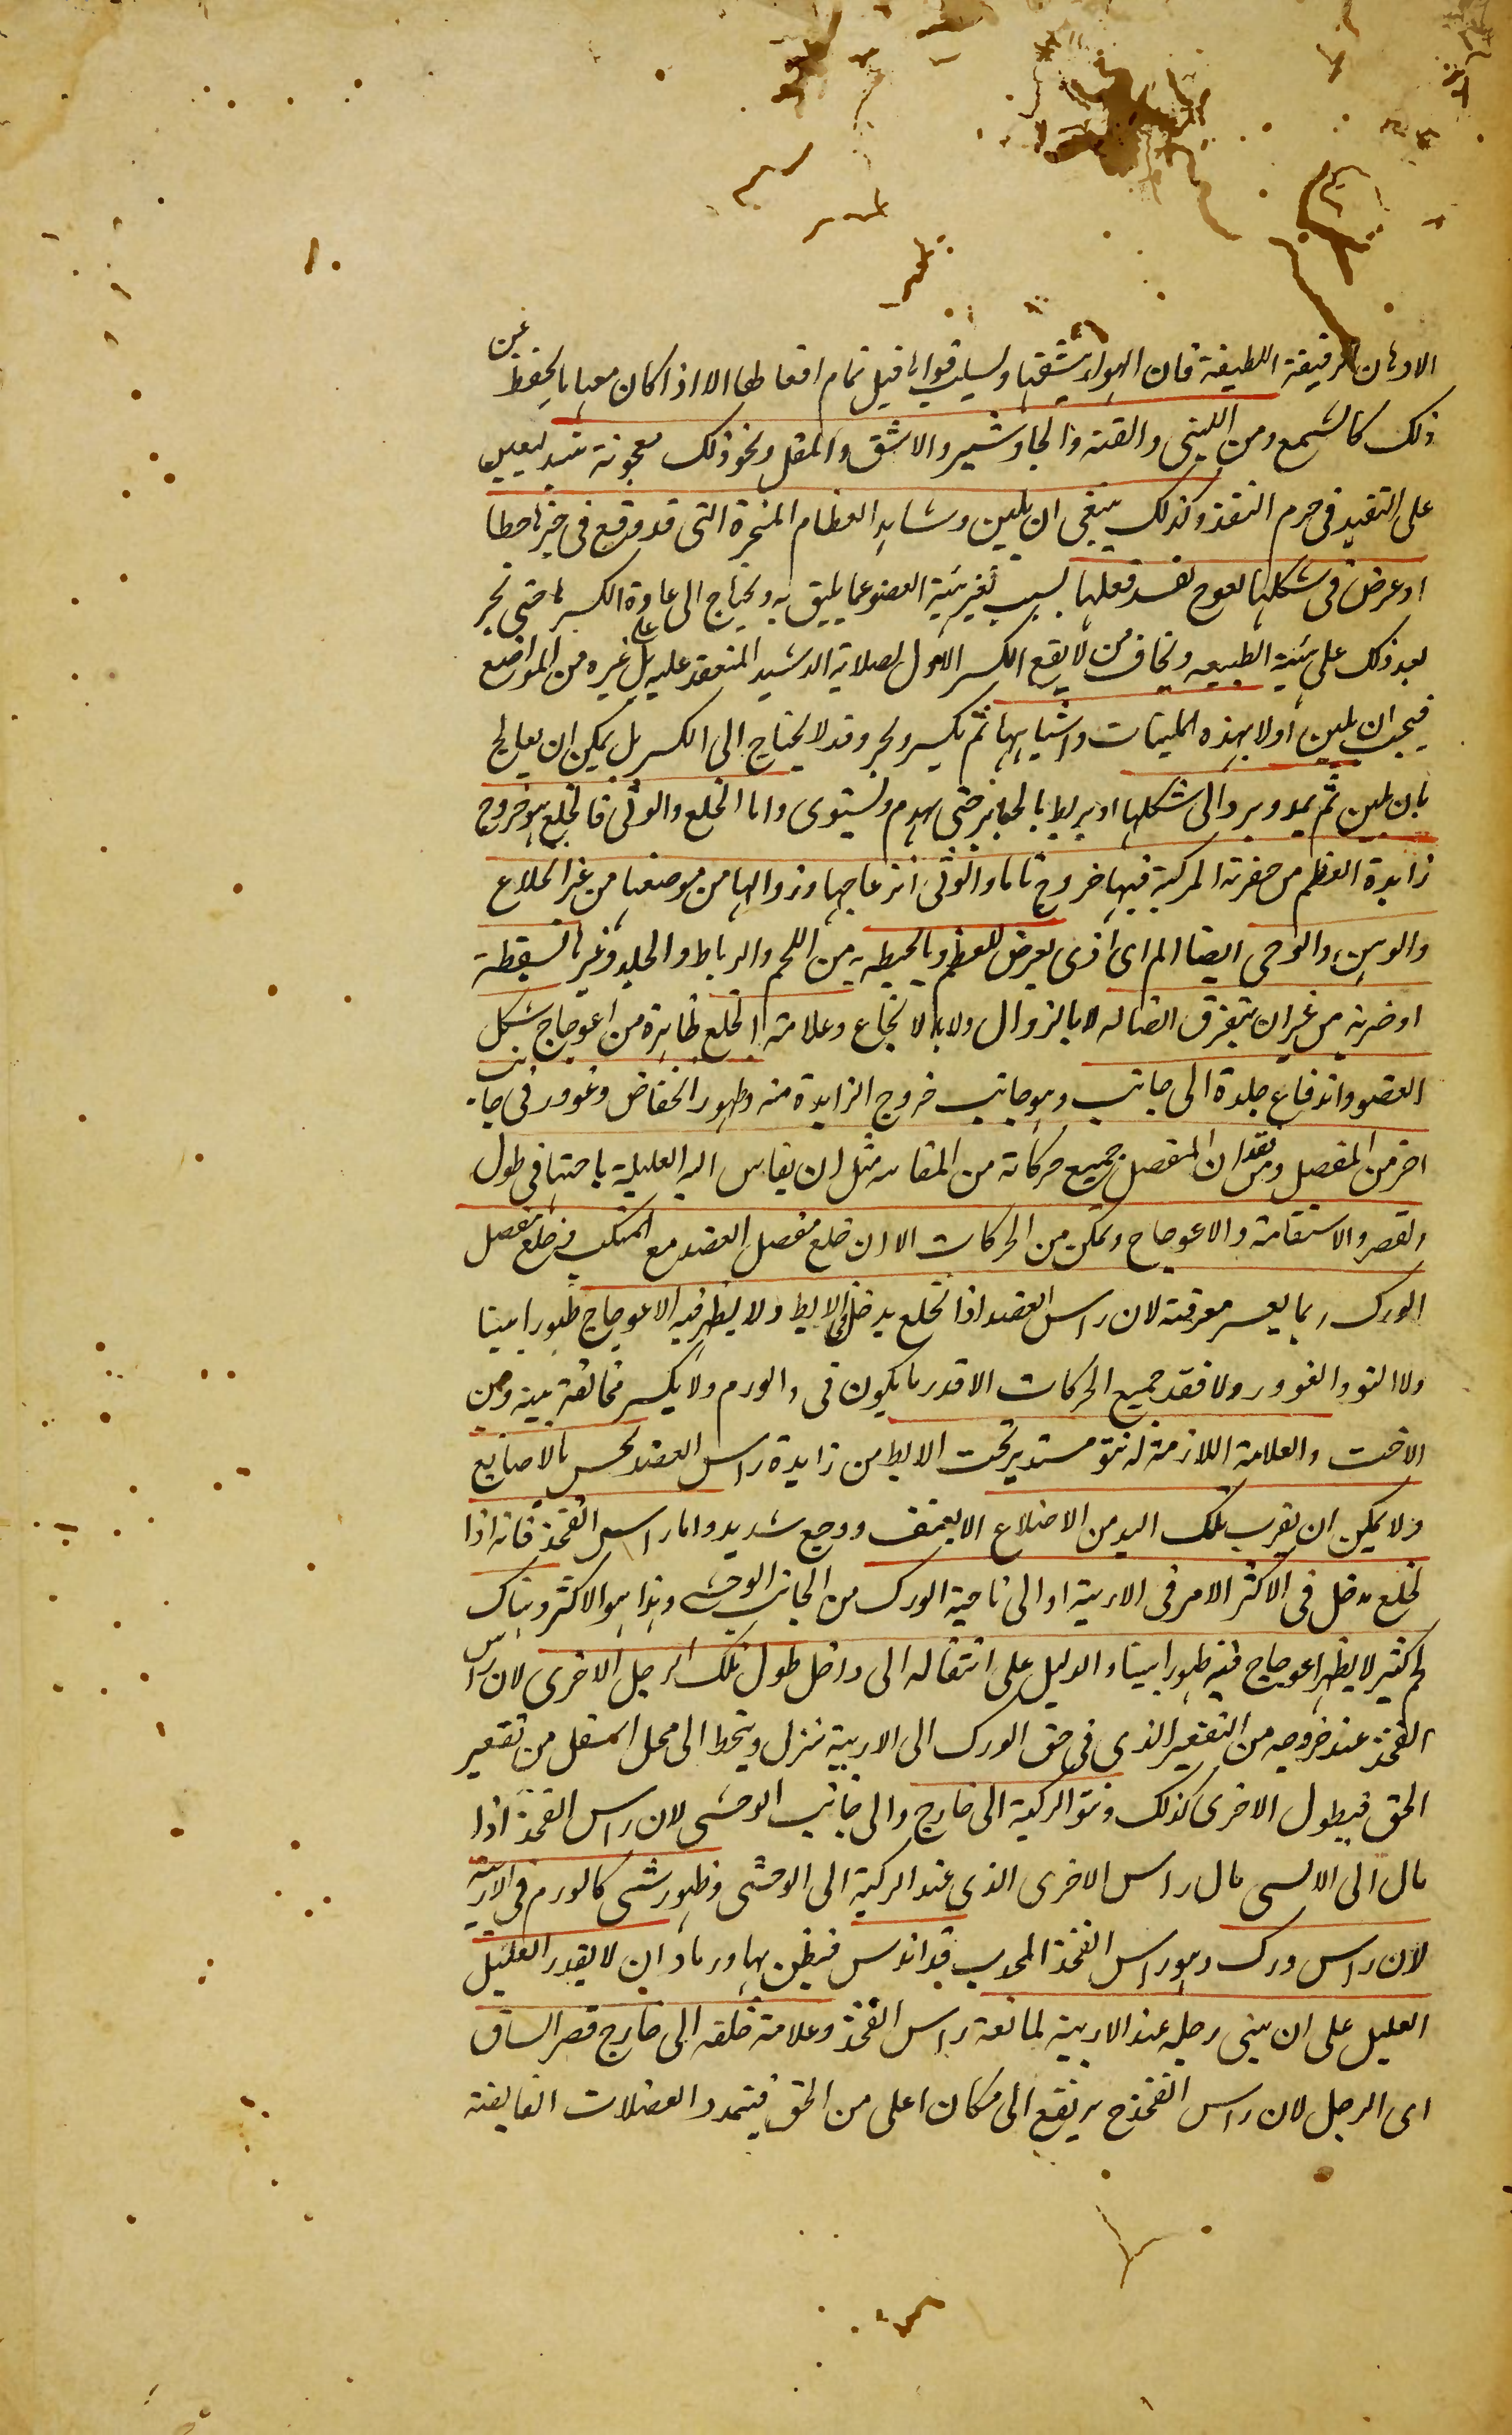 الادهان الرقيقة اللطيفة فان الهواء ينشفها ويسلب قواها قبل تمام افعالها الا اذا كان معها ما يحفظ عن
ذلك كالشمع ومن اللبنى والقنة والجاوشير والاشق والمقل ونحو ذلك معجونة
على التقيد فى جرم وكذلك ينبغى ان يلين وشابذ العظام المنجبرة التى قد وقع فى جبرها خطا
او عرض فى شكلها تعوج يفسد فعلها بسبب تغير هيئة العضو عما يليق به ويحتاج الى اعادة الكسر ها حتى تجبر
بعد ذلك على هيئة الطبيعه ويخاف من ان لا يقع الكسر الاول لصلابة الدشبد المنعقد عليه بل على غيره من المواضع
فيجب ان يلين اولا بهذه الملينات واشباهها ثم يكسر ويجبر وقد لا يحتاج الى الكسر بل يمكن ان يعالج
بان يلين ثم يمد ويرد الى شكلها او يربط بالجباير حتى يهدم ويستوى واما الخلع والوثى فالخلع هو خروج
زايدة العظم من حفرته المركبة فيها خروج تاما والوثى انزعاجها وزوالها من موضعها من غير انخلاع
والوهن والوجى ايضا الم اى اذى يعرض للعظم وما يحيط به من اللحم والرباط والجلد وغيرها لسقطة
او ضربه من غير ان يتفرق اتصاله لا بالزوال ولا بالانخلاع وعلامة الخلع ظاهرة من اعوجاج شكل
العضو واندفاع جلدة الى جانب وهو جانب خروج الزايدة منه وظهور انخفاض وغوور فى جانب
اخر من المفصل ومن فقدان المفصل جميع حركاته من المقايسه مثل ان يقاس اليد العليلة باختها فى طول
والقصر والاستقامة والاعوجاج وتمكن من الحركات الا ان خلع مفصل العضد مع المنكب وخلع مفصل
الورك ربما يعسر معرفته لان راس العضد اذا انخلع يدخل فى الابط ولا يظهر فيه الاعوجاج ظهورا بينا
ولا النتو والغوور ولا فقد جميع الحركات الا قدر ما يكون فى والورم ولا يكسر مخالفة بينه وبين
الاخت والعلامة اللازمة له نتو مستدير تحت الابط من زايدة راس العضد يحس بالاصابع
ولا يمكن ان يقرب تلك اليد من الاضلاع الا بعنف ووجع شديد واما راس الفخذ فانه اذا
انخلع يدخل فى الاكثر الامر فى الاربية او الى ناحية الورك من الجانب الوحشى وهذا هو الاكثر وهناك
لحم كثير لا يظهر اعوجاج فيه ظهورا بينا والدليل على انتقاله الى داخل طول تلك الرجل الاخرى لان راس
الفخذ عند خروجه من التقعير الذى فى حق الورك الى الاربية ينزل وينحط الى محل اسفل من تقعير
الحق فيطول الاخرى كذلك ونتو الركبة الى خارج والى جانب الوحشى لان راس الفخذ اذا
مال الى الانسى مال راس الاخرى الذى عند الركبة الى الوحشى وظهور شى كالورم فى الاربية
لان راس ورك وهو راس الفخذ المحدب قد اندس فيظن بها ورما وان لا يقدر العليل
العليل على ان يثنى رجله عند الاربية لمانعة راس الفخذ وعلامة خلعه الى خارج قصر الساق
اى الرجل لان راس الفخذ ح يرتفع الى مكان اعلى من الحق فيتمدد العضلات القابضة